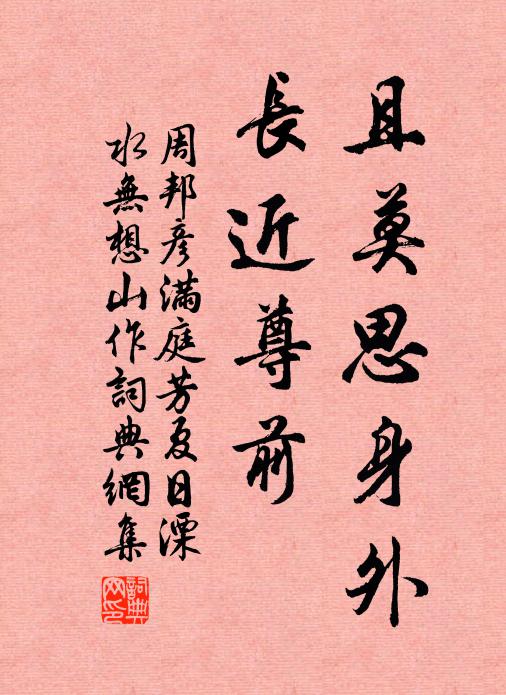 且莫思身外
長近尊前
周邦彥滿庭芳夏日溧
水無想山作詞典網集
詞典
网印